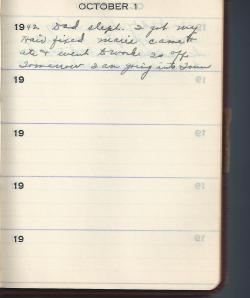 OCTOBER 1
1942 Dad slept. I got my
hair fixed marie came to
ate & went to work is off
Tomorrow I am going into Town
19
19
19
19